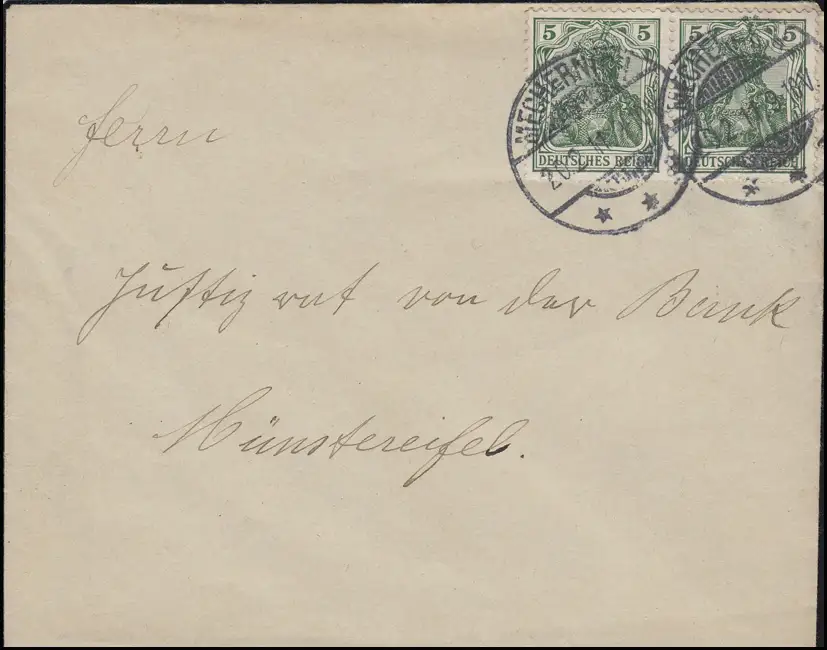 5 5 5 5
DEUTSCHES REICH DEUTSCHES REICH
MECHERNICH
20.2.11
Herrn
Justizrat von der Bank
Münstereifel.